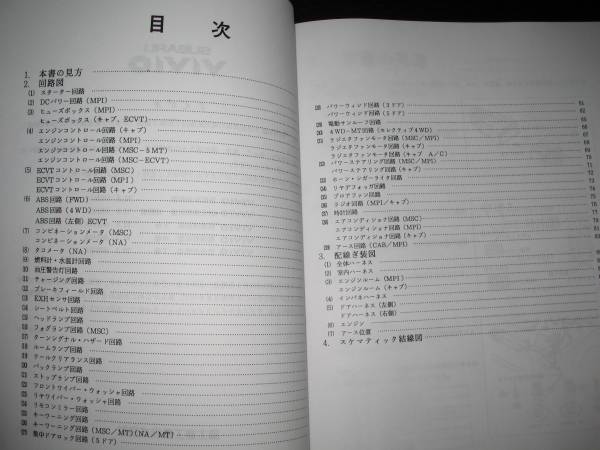 目次
1. 本書の見方
2. 回路図
(1) スターター回路
(2) DCパワー回路(MPI)
(3) ヒューズボックス(MPI)
ヒューズボックス(キャブ、ECVT)
(4) エンジンコントロール回路(キャブ)
エンジンコントロール回路(MPI)
エンジンコントロール回路(MSC-5MT)
エンジンコントロール回路(MSC-ECVT)
(5) ECVTコントロール回路(MSC)
ECVTコントロール回路(MPI)
ECVTコントロール回路(キャブ)
(6) ABS回路(FWD)
ABS回路(4WD)
ABS回路(左側)ECVT
(7) コンビネーションメータ(MSC)
コンビネーションメータ(NA)
(8) タコメータ(NA)
(9) 燃料計・水温計回路
(10) 油圧警告灯回路
(11) チャージング回路
(12) ブレーキフィールド回路
(13) EXHセンサ回路
(14) シートベルト回路
(15) ヘッドランプ回路
(16) フォグランプ回路(MSC)
(17) ターンシグナル・ハザード回路
(18) ルームランプ回路
(19) テールクリアランス回路
(20) バックランプ回路
(21) ストップランプ回路
(22) フロントワイパー・ウォッシャ回路
(23) リヤワイパー・ウォッシャ回路
(24) リモコンミラー回路
(25) キーワーニング回路
(26) キーワーニング回路(MSC/MT)(NA/MT)
(27) 集中ドアロック回路(5ドア)
(28) パワーウィンド回路(3ドア) 61
パワーウィンド回路(5ドア)
(29) 電動サンルーフ回路
(30) 4WD-MT回路(セレクティブ4WD)
(31) ラジエチファンモータ回路(MSC/MPI)
ラジエチファンモータ回路(キャブ)
ラジエチファンモータ回路(キャブ A/C)
(32) パワーステアリング回路(MSC/MPI)
パワーステアリング回路(キャブ)
(33) ホーン・シガーライタ回路
(34) リヤデフォッガ回路
(35) ブロアファン回路
(36) ラジオ回路(MPI/キャブ)
(37) 時計回路
(38) エアコンディショナ回路(MSC)
エアコンディショナ回路(MPI)
エアコンディショナ回路(キャブ)
(39) アース回路(CAB/MPI)
3. 配線ぎ装図
(1) 全体ハーネス
(2) 室内ハーネス
(3) エンジンルーム(MPI)
エンジンルーム(キャブ)
(4) インパネハーネス
(5) ドアハーネス(左側)
ドアハーネス(右側)
(6) エンジン
(7) アース位置
4. スケマティック結線図